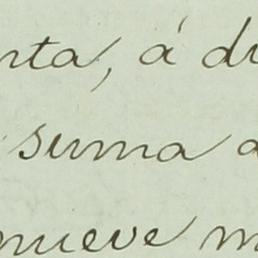 nta, á di
suma d
nueve m